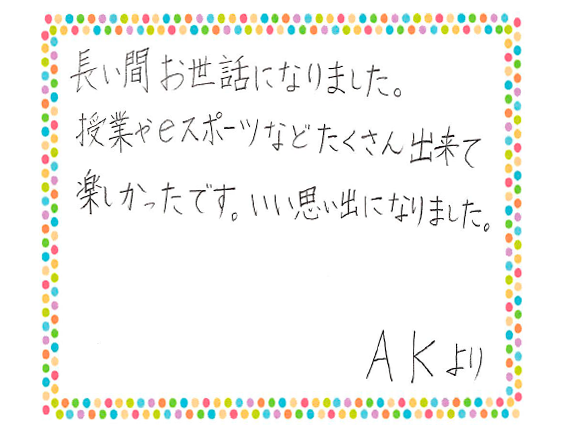 長い間お世話になりました。
授業やeスポーツなどたくさん出来て
楽しかったです。いい思い出になりました。
AKより